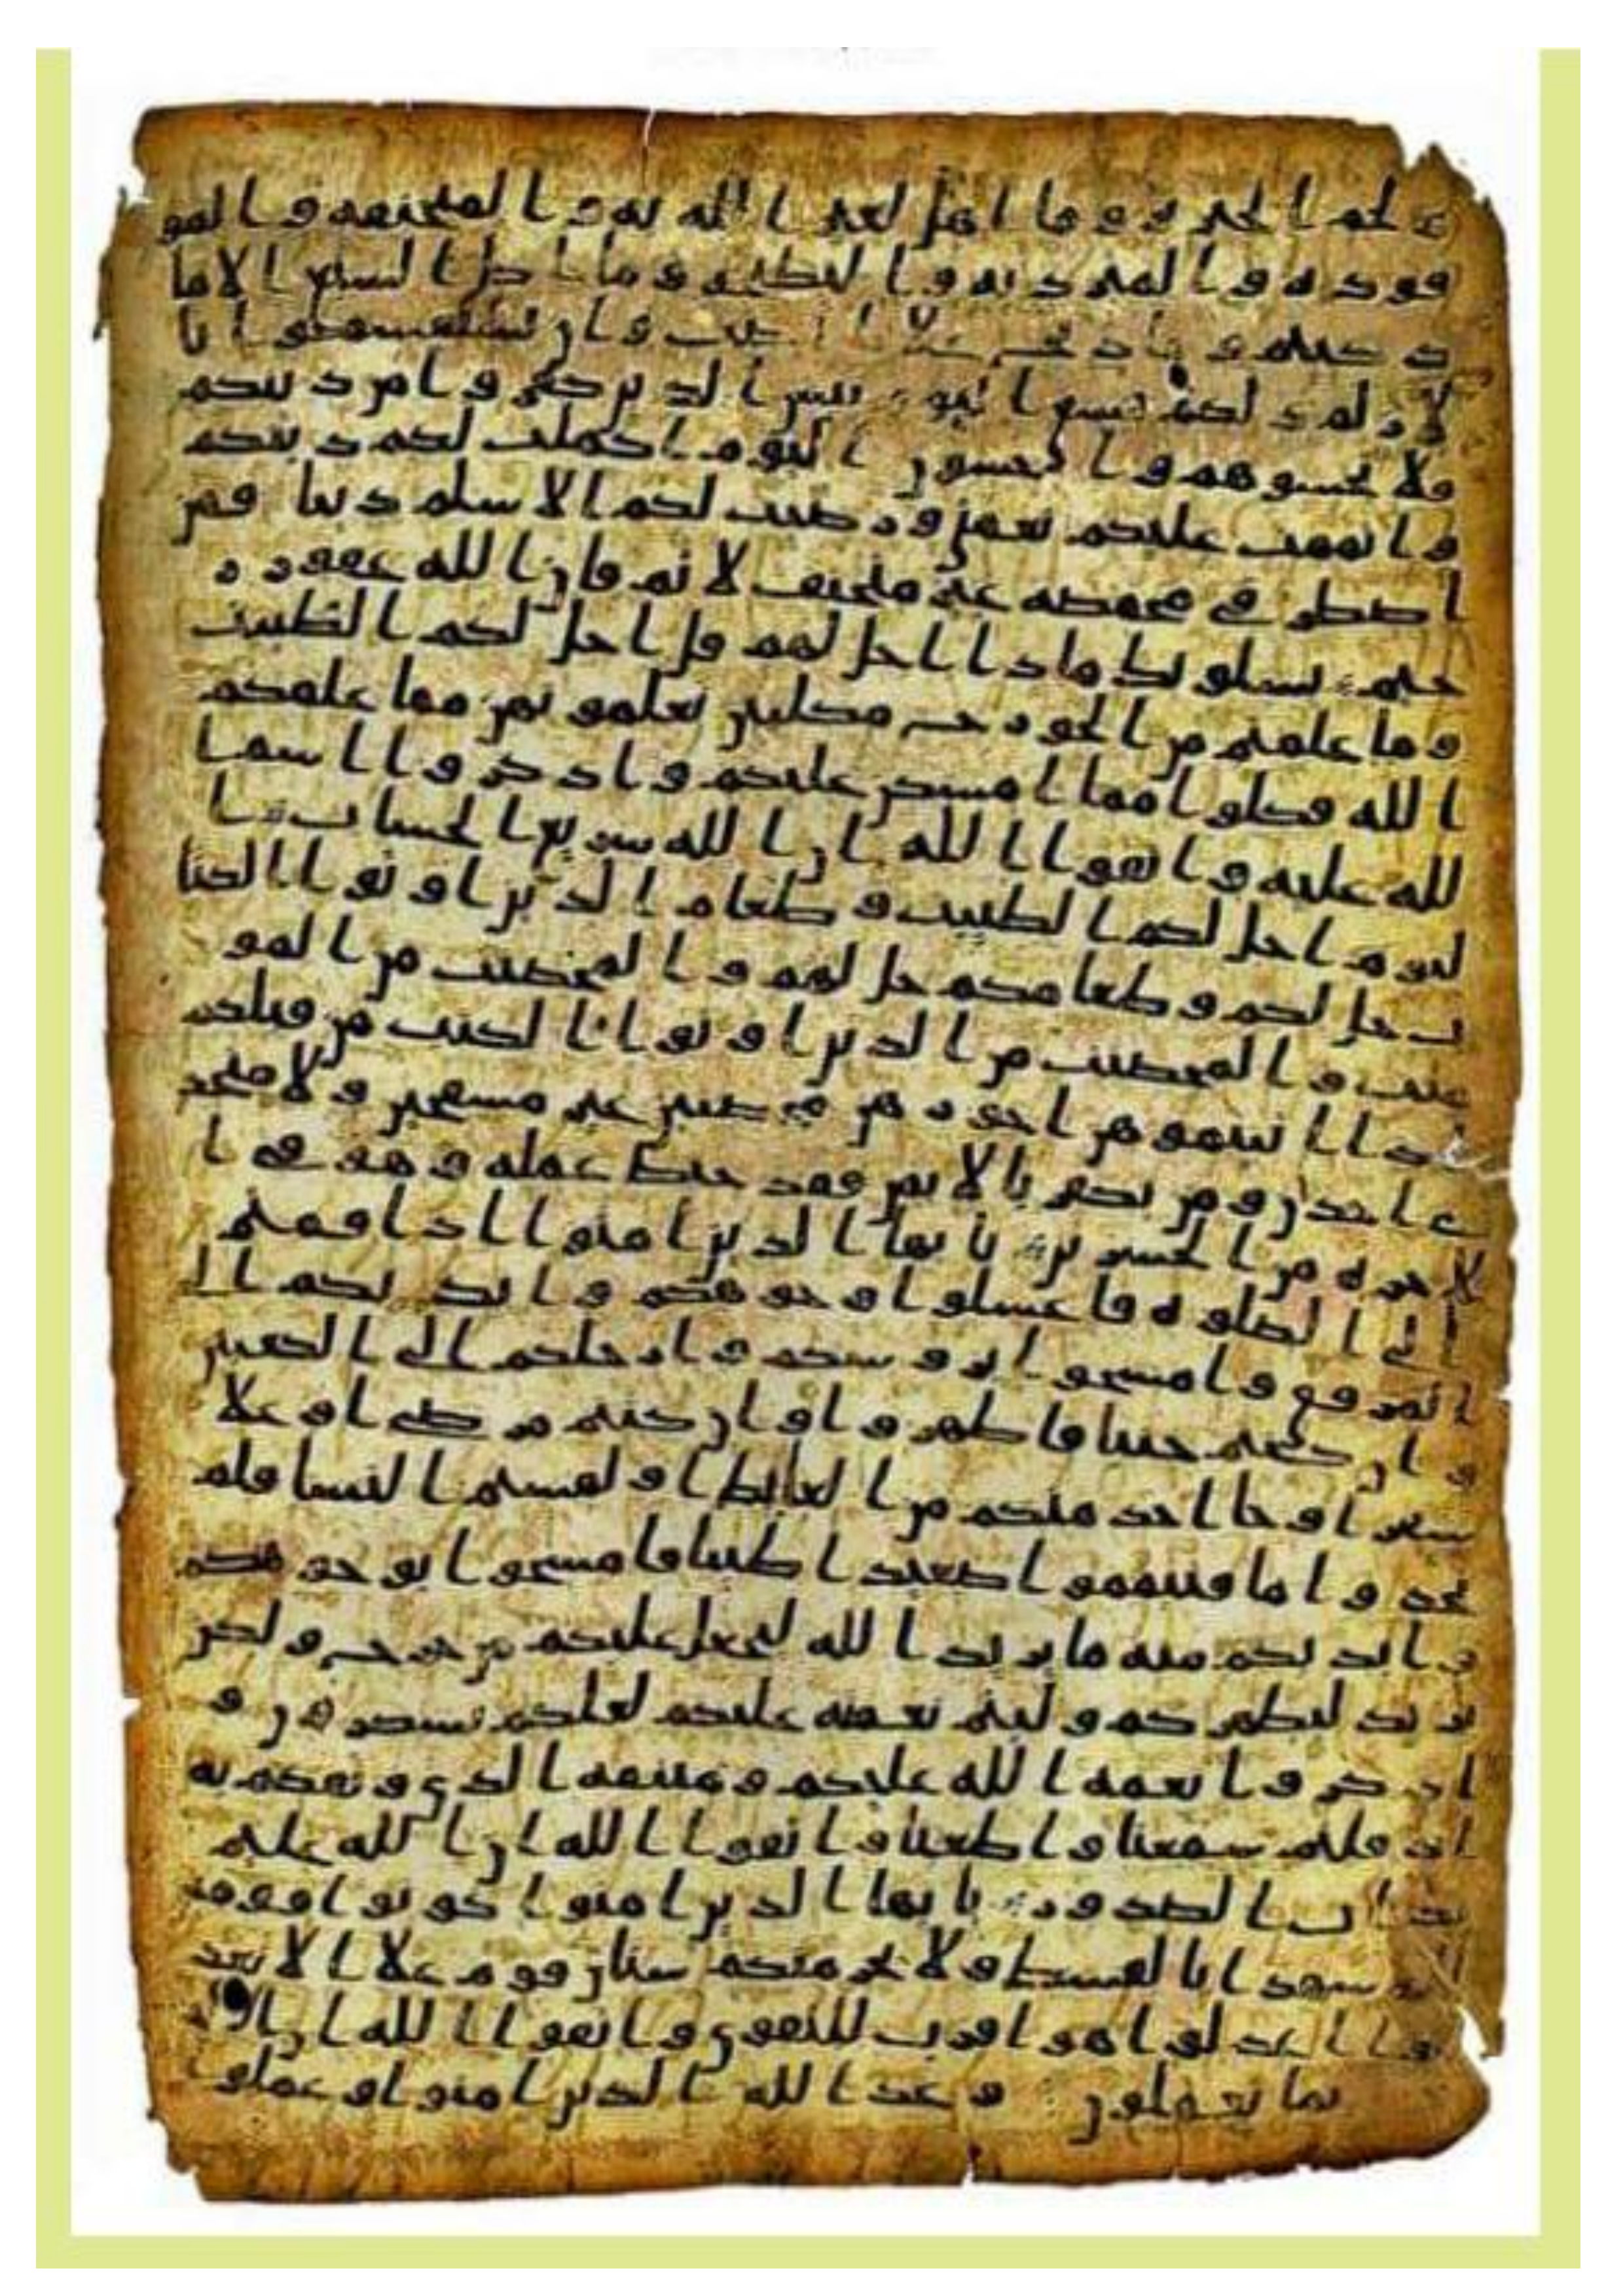 و لحم الخنزير وما اهل لغير الله به والمنخنقة والمو
قوذة والمتردية والنطيحة وما اكل السبع الا ما
ذكيتم وما ذبح علا النصب وان تستقسموا با
لازلم ذلكم فسق اليوم يئس الذين كفروا من دينكم
فلا تخشوهم واخشون اليوم اكملت لكم دينكم
واتممت عليكم نعمتي ورضيت لكم الاسلم دينا فمن
اضطر في مخمصة غير متجنف لاثم فان الله غفور ر
حيم يسلونك ماذا احل لهم قل احل لكم الطيبت
وما علمتم من الجورح مكلبين تعلمونهن مما علمكم
الله فكلوا مما امسكن عليكم واذكروا اسم ا
لله عليه واتقوا الله ان الله سريع الحساب ا
ليوم احل لكم الطيبت وطعام الذين اوتوا الكتا
ب حل لكم وطعامكم حل لهم والمحصنت من المو
منت والمحصنت من الذين اوتوا الكتب من قبلكم
اذا اتيتموهن اجورهن محصنين غير مسفحين ولا متخذ
ي اخدن ومن يكفر بالايمن فقد حبط عمله وهو في ا
لاخرة من الخسرين يايها الذين امنوا اذا قمتم
الى الصلوة فاغسلوا وجوهكم وايديكم الى
المرفق وامسحوا بروسكم وارجلكم الى الكعبين
وان كنتم جنبا فاطهروا وان كنتم مرضى او علا
سفر او جا احد منكم من الغايط او لمستم النسا فلم
تجدوا ما فتيمموا صعيدا طيبا فامسحوا بوجوهكم
وايديكم منه ما يريد الله ليجعل عليكم من حرج ولكن
يريد ليطهركم وليتم نعمته عليكم لعلكم تشكرون و
اذكروا نعمة الله عليكم وميثقه الذي وثقكم به
اذ قلتم سمعنا واطعنا واتقوا الله ان الله عليم
بذات الصدور يايها الذين امنوا كونوا قومين
شهدا بالقسط ولا يجرمنكم شنان قوم علا الا تعد
لوا اعدلوا هو اقرب للتقوى واتقوا الله ان
بما تعملون وعد الله الذين امنوا وعملوا